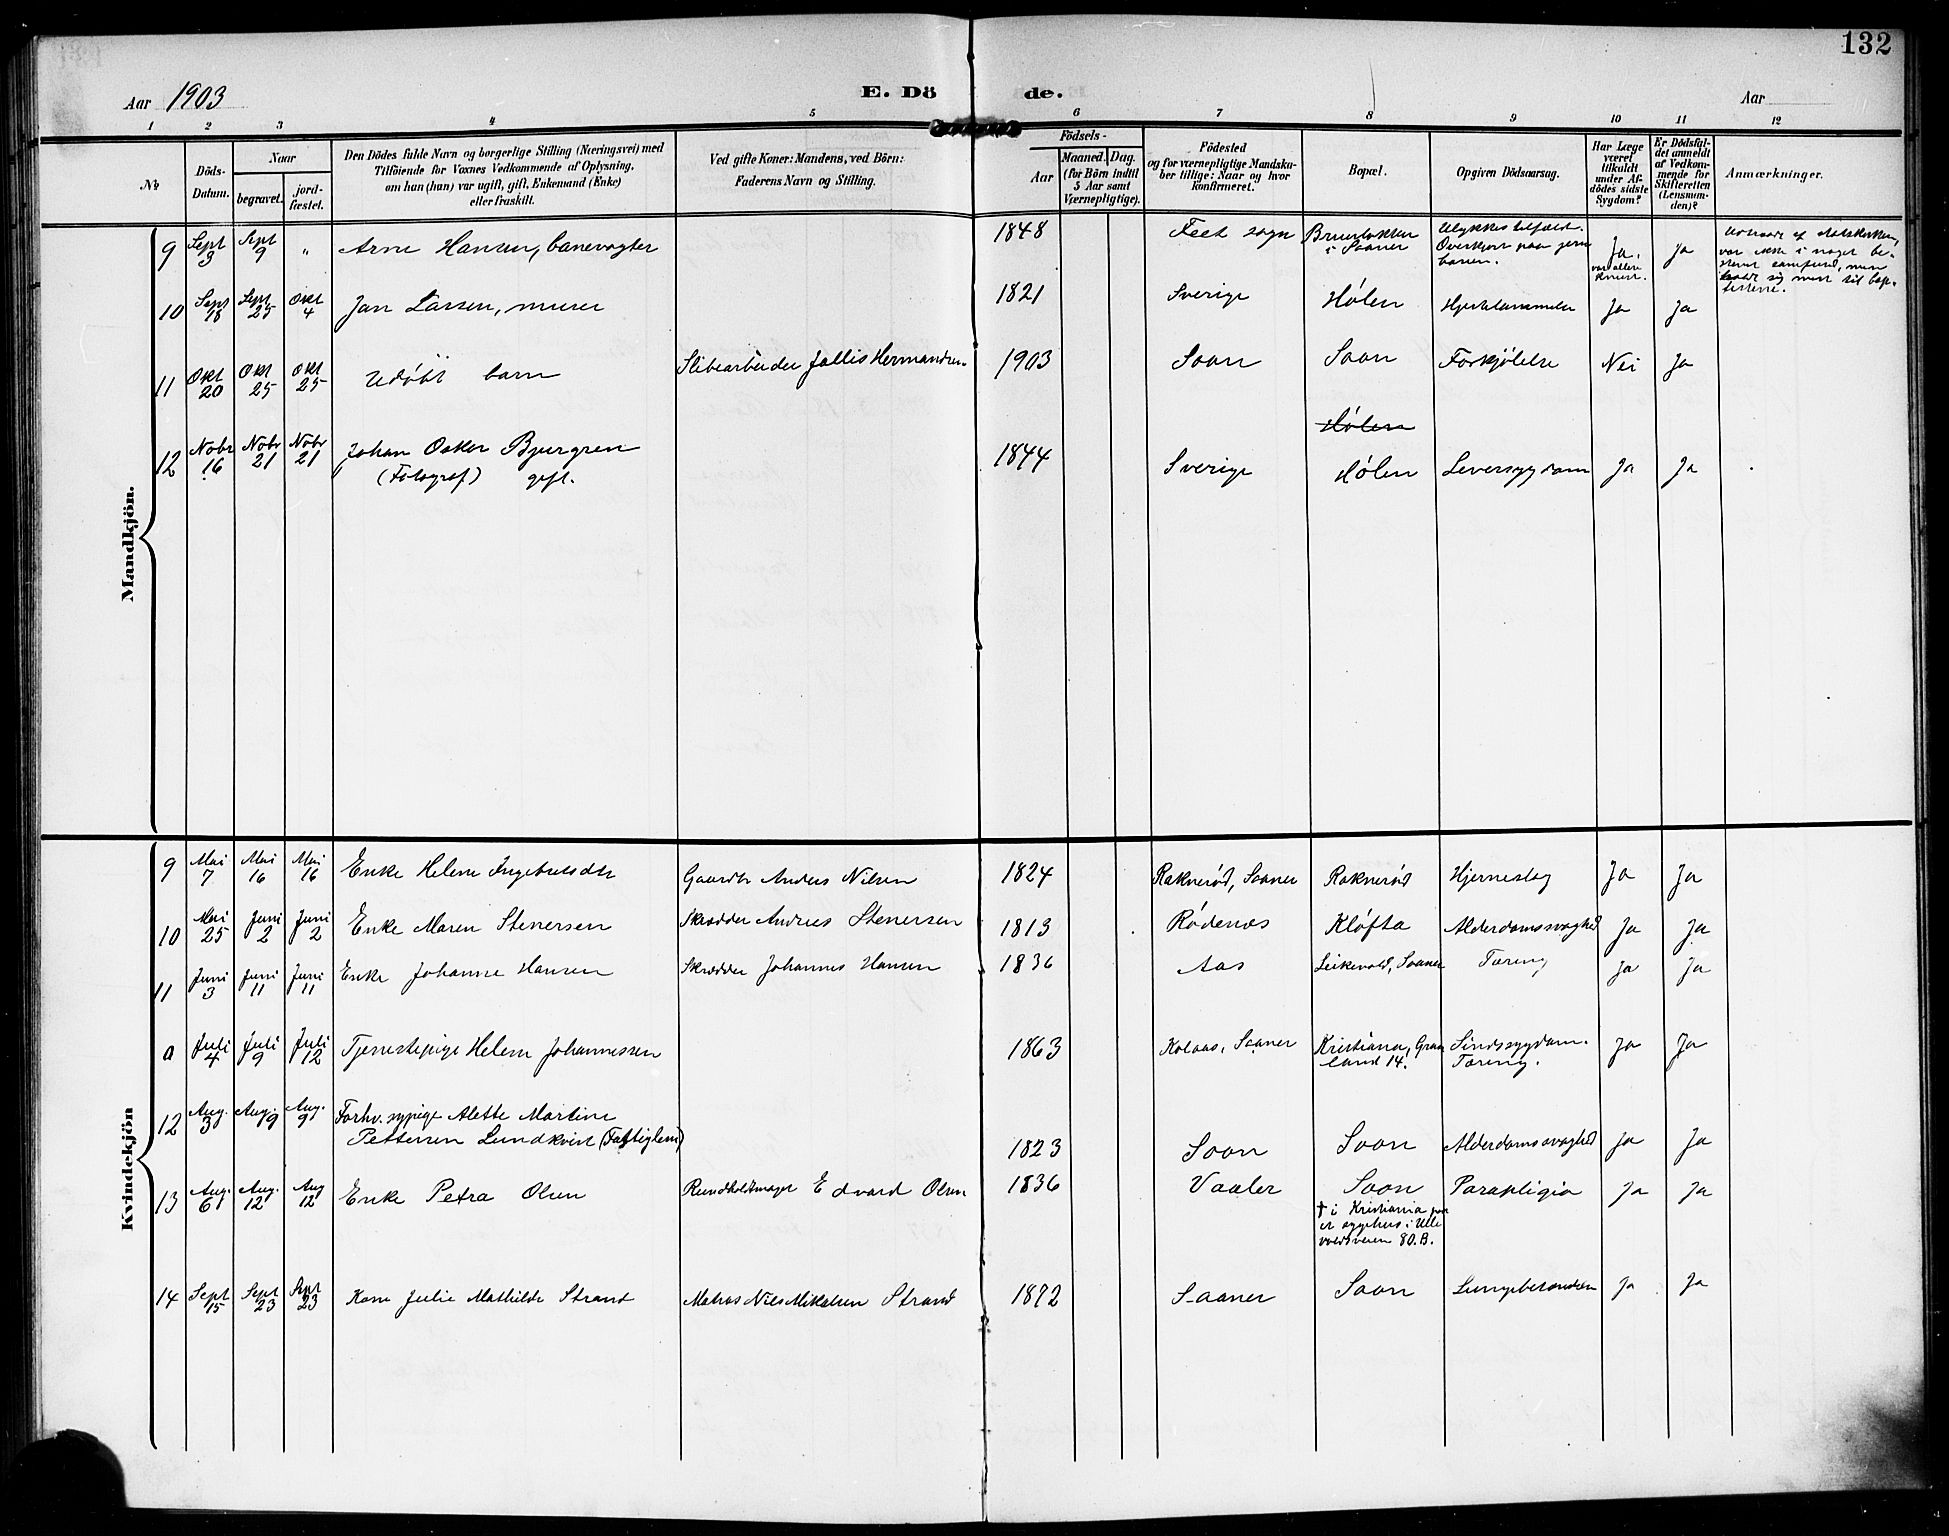 132
Aar 1903
E. Dö
de.
Aar
1 2 3 4 5 6 7 8 9 10 11 12
No
Döds-
Datum.
Naar
begravet.
jord-
fæstet.
Den Dödes fulde Navn og borgerlige Stilling (Næringsvei) med
Tilföiende for Voxnes Vedkommende af Oplysning,
om han (hun) var ugift, gift, Enkemand (Enke)
eller fraskilt.
Ved gifte Koner: Mandens, ved Börn:
Faderens Navn og Stilling.
Födsels-
Aar
Maaned. Dag.
(for Börn indtil
5 Aar samt
Værnepligtige).
Födested
og for værnepligtige Mandska-
ber tillige: Naar og hvor
konfirmeret.
Bopæl.
Opgiven Dödsaarsag.
Har Læge
været
tilkaldt
under Af-
dödes sidste
Sygdom?
Er Dödsfal-
det anmeldt
af Vedkom-
mende for
Skifteretten
(Lensman-
den)?
Anmærkninger.
Mandkjön.
9 Sept 3 Sept 9 " Arne Hansen, banevogter 1848 Feet sogn i Saaner Ulykkestilfæld. Overkjørt paa jern banen. Ja, var allere Ja
Udtraadt af statskirken,
var ikke i noget be-
stemt samfund, men
sig mest til bap-
tisterne.
10 Sept 18 Sept 25 Okt 4 Jan Larsen, murer 1821 Sverige Hølen Hjertelammelse Ja Ja
11 Okt 20 Okt 25 Okt 25 Udøbt barn Slibearbeider Jallis Hermandsen 1903 Soon Soon Forkjølelse Nei Ja
Hølen
12 Nobr 16 Nobr 21 Nobr 21 Johan Oskar Bjurgren 1844 Sverige Hølen Leversygdom Ja Ja
(Fotograf) gift.
Kvindekjön
9 Mai 7 Mai 16 Mai 16 Enke Helene Ingebretsdtr Gaardbr Anders Nilsen 1824 Raknerød, Saaner Raknerød Hjerneslag Ja Ja
10 Mai 25 Juni 2 Juni 2 Enke Maren Stenersen Skrædder Andreas Stenersen 1813 Rødenæs Kløfta Alderdomssvaghed Ja Ja
11 Juni 3 Juni 11 Juni 11 Enke Johanne Hansen Skrædder Johannes Hansen 1836 Aas Leikevold, Saaner Tæring Ja Ja
a Juli 4 Juli 9 Juli 12 Tjenestepige Helene Johannessen 1863 Kolaas, Saaner Kristiania, Grøn land 14. Sindssygdom. Tæring. Ja Ja
12 Aug. 3 Aug. 9 Aug. 9 Forhv. sypige Alette Martine
Pettersen Lundkvist (Fattiglem) 1823 Soon Soon Alderdomssvaghed Ja Ja
13 Aug. 6 Aug. 12 Aug 12 Enke Petra Olsen Rundholdtmager Edvard Olsen 1836 Vaaler Soon Paraplegia Ja Ja
† i Kristiania paa
et sygehus i Ulle
voldsveien 80. B.
14 Sept 15 Sept 23 Sept 23 Kone Julie Mathilde Strand Matros Nils Mikkelsen Strand 1872 Saaner Soon Lungebetændelse Ja Ja